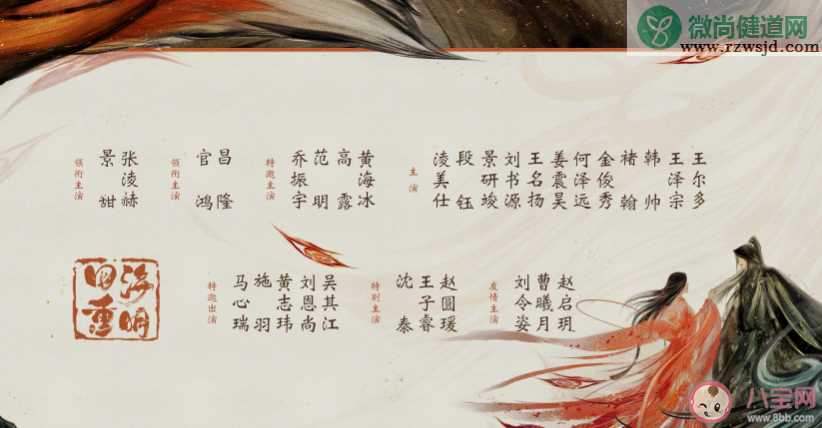 微尚健道网
www.rzwsjd.com
领衔主演
景甜
张淩赫
领衔主演
官鸿
昌隆
特邀主演
乔振宇
范明
高露
黄海冰
主演
淩美仕
段钰
景研竣
刘书源
王名扬
姜震昊
何泽远
金俊秀
褚翰
韩帅
王泽宗
王尔多
四海重明
特邀出演
马心瑞
施羽
黄志玮
刘恩尚
吴其江
特别主演
沈泰
王子睿
赵圆瑗
友情主演
刘令姿
曹曦月
赵启玥
八宝网
www.8bb.com